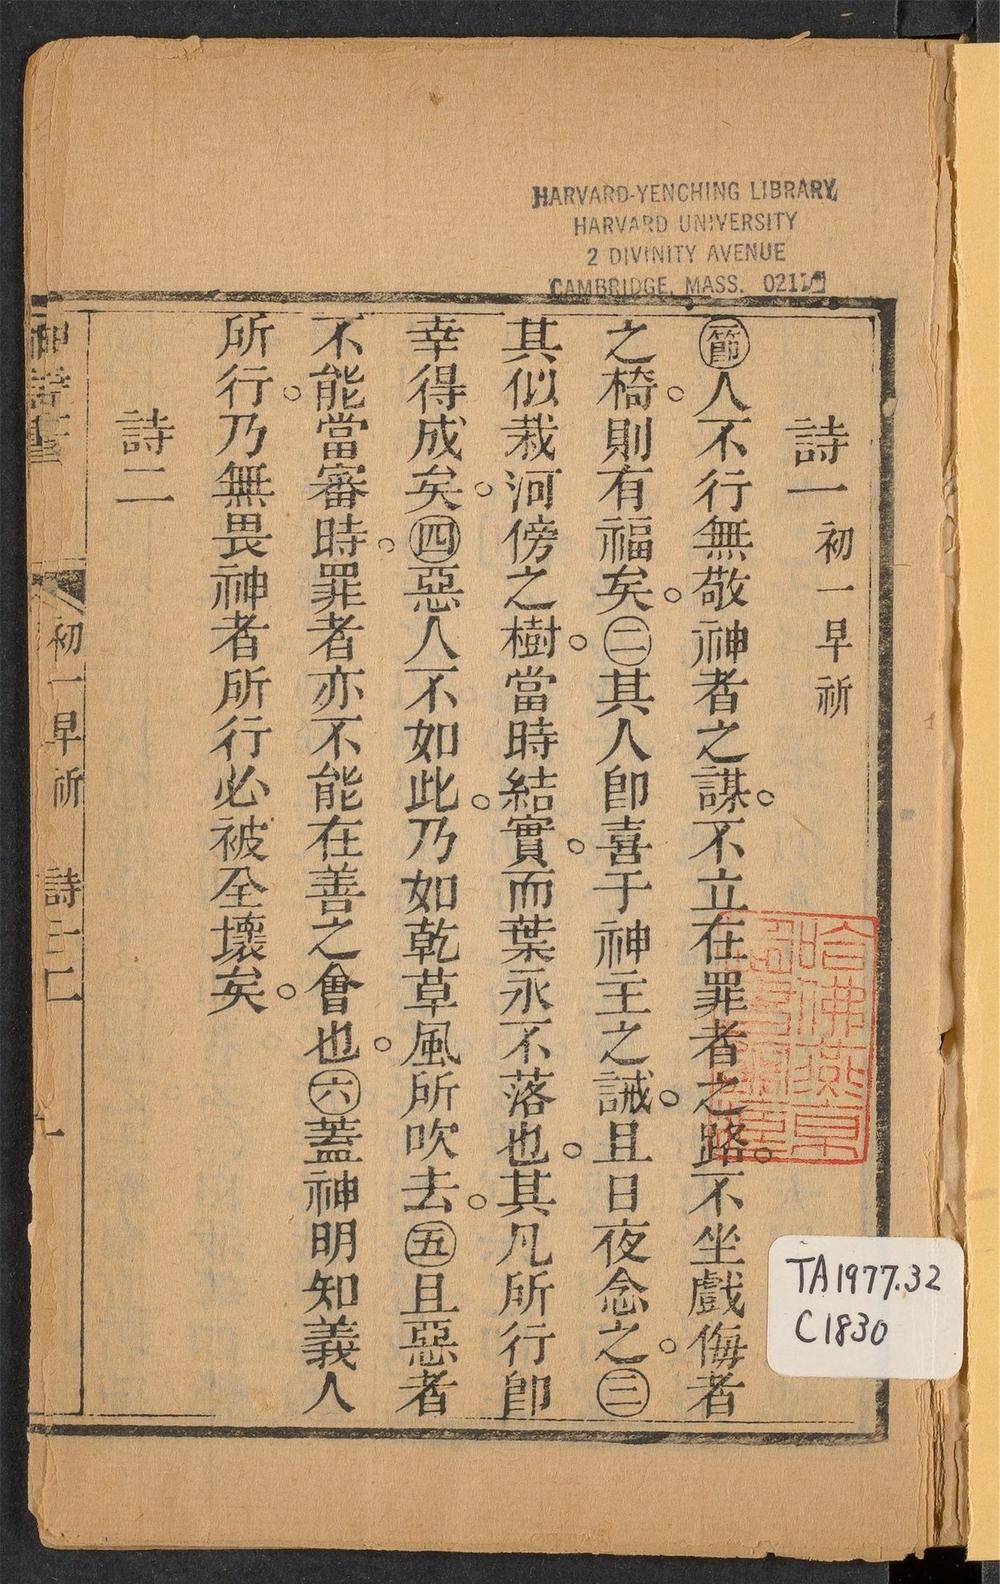 HARVARD-YENCHING LIBRARY
HARVARD UNIVERSITY
2 DIVINITY AVENUE
CAMBRIDGE, MASS. 0213
詩一 初一早祈
節人不行無敬神者之謀。不立在罪者之路。不坐戲侮者
之椅。則有福矣。㊁其人卽喜于神主之誡。且日夜念之。㊂
其似栽河傍之樹。當時結實。而葉永不落也。其凡所行卽
幸得成矣。㊃惡人不如此。乃如乾草風所吹去。㊄且惡者
不能當審時。罪者亦不能在善之會也。㊅蓋神明知義人
所行。乃無畏神者所行必被全壞矣。
詩二
神詩書 初一早祈 詩一二 一
哈佛燕京
TA1977.32
C1830